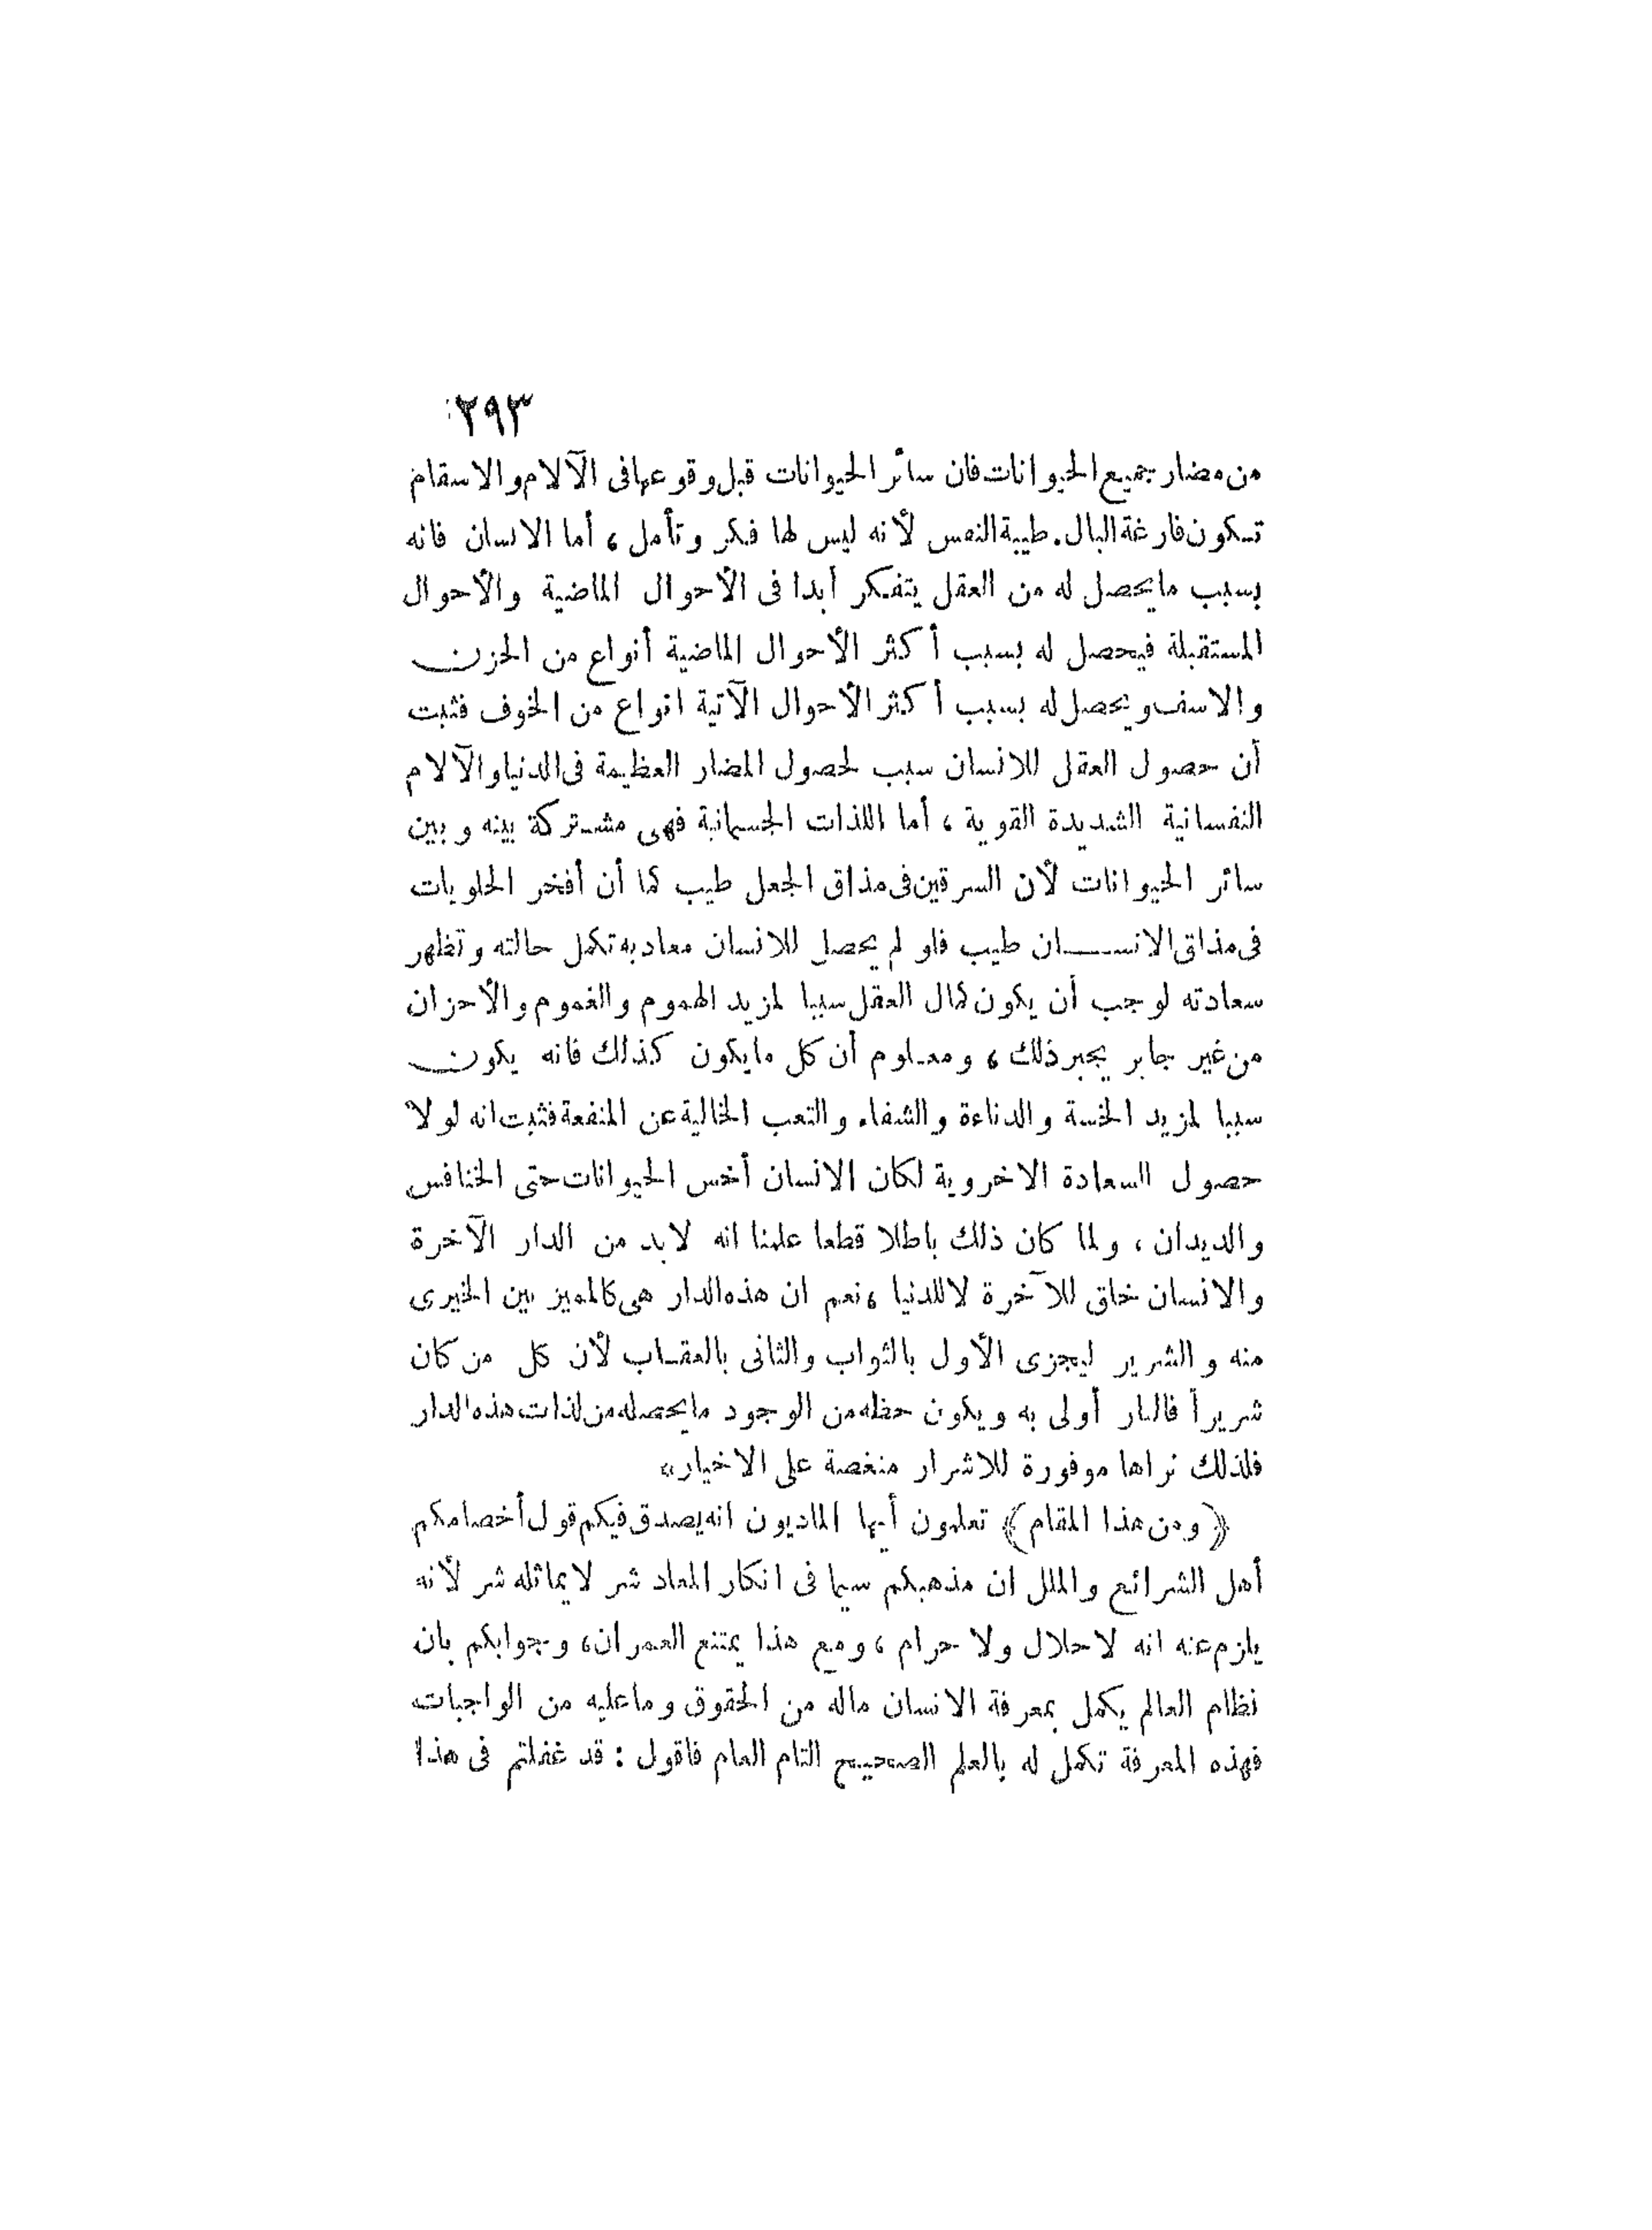 ٢٩٣
من مضار جميع الحيوانات فان سائر الحيوانات قبل وقوعها فى الآلام والاسقام
تكون فارغة البال. طيبة النفس لأنه ليس لها فكر وتأمل ، أما الانسان فانه
بسبب ما يحصل له من العقل يتفكر أبدا فى الأحوال الماضية والأحوال
المستقبلة فيحصل له بسبب أكثر الأحوال الماضية أنواع من الحزن
والاسف ويحصل له بسبب أكثر الأحوال الآتية انواع من الخوف فثبت
أن حصول العقل للانسان سبب لحصول المضار العظيمة فى الدنيا والآلام
النفسانية الشديدة القوية ، أما اللذات الجسمانية فهى مشتركة بينه وبين
سائر الحيوانات لأن السرقين فى مذاق الجعل طيب كما أن أفخر الحلويات
فى مذاق الانسان طيب فلو لم يحصل للانسان معاد به تكمل حالته وتظهر
سعادته لوجب أن يكون كمال العقل سببا لمزيد الهموم والغموم والأحزان
من غير جابر يجبر ذلك ، ومعلوم أن كل ما يكون كذلك فانه يكون
سببا لمزيد الخسة والدناءة والشقاء والتعب الخالية عن المنفعة فثبت انه لولا
حصول السعادة الاخروية لكان الانسان أخس الحيوانات حتى الخنافس
والديدان ، ولما كان ذلك باطلا قطعا علمنا انه لابد من الدار الآخرة
والانسان خلق للآخرة لا للدنيا ، نعم ان هذه الدار هى كالمميز بين الخيرى
منه والشرير ليجزى الأول بالثواب والثانى بالعقاب لأن كل من كان
شريراً فالنار أولى به ويكون حظه من الوجود ما يحصله من لذات هذه الدار
فلذلك نراها موفورة للاشرار منغصة على الاخيار»
﴿ ومن هذا المقام ﴾ تعلمون أيها الماديون انه يصدق فيكم قول أخصامكم
أهل الشرائع والملل ان مذهبكم سيما فى انكار المعاد شر لا يماثله شر لأنه
يلزم عنه انه لا حلال ولا حرام ، ومع هذا يمتنع العمران ، وجوابكم بان
نظام العالم يكمل بمعرفة الانسان ماله من الحقوق وما عليه من الواجبات
فهذه المعرفة تكمل له بالعلم الصحيح التام العام فاقول : قد غفلتم فى هذا